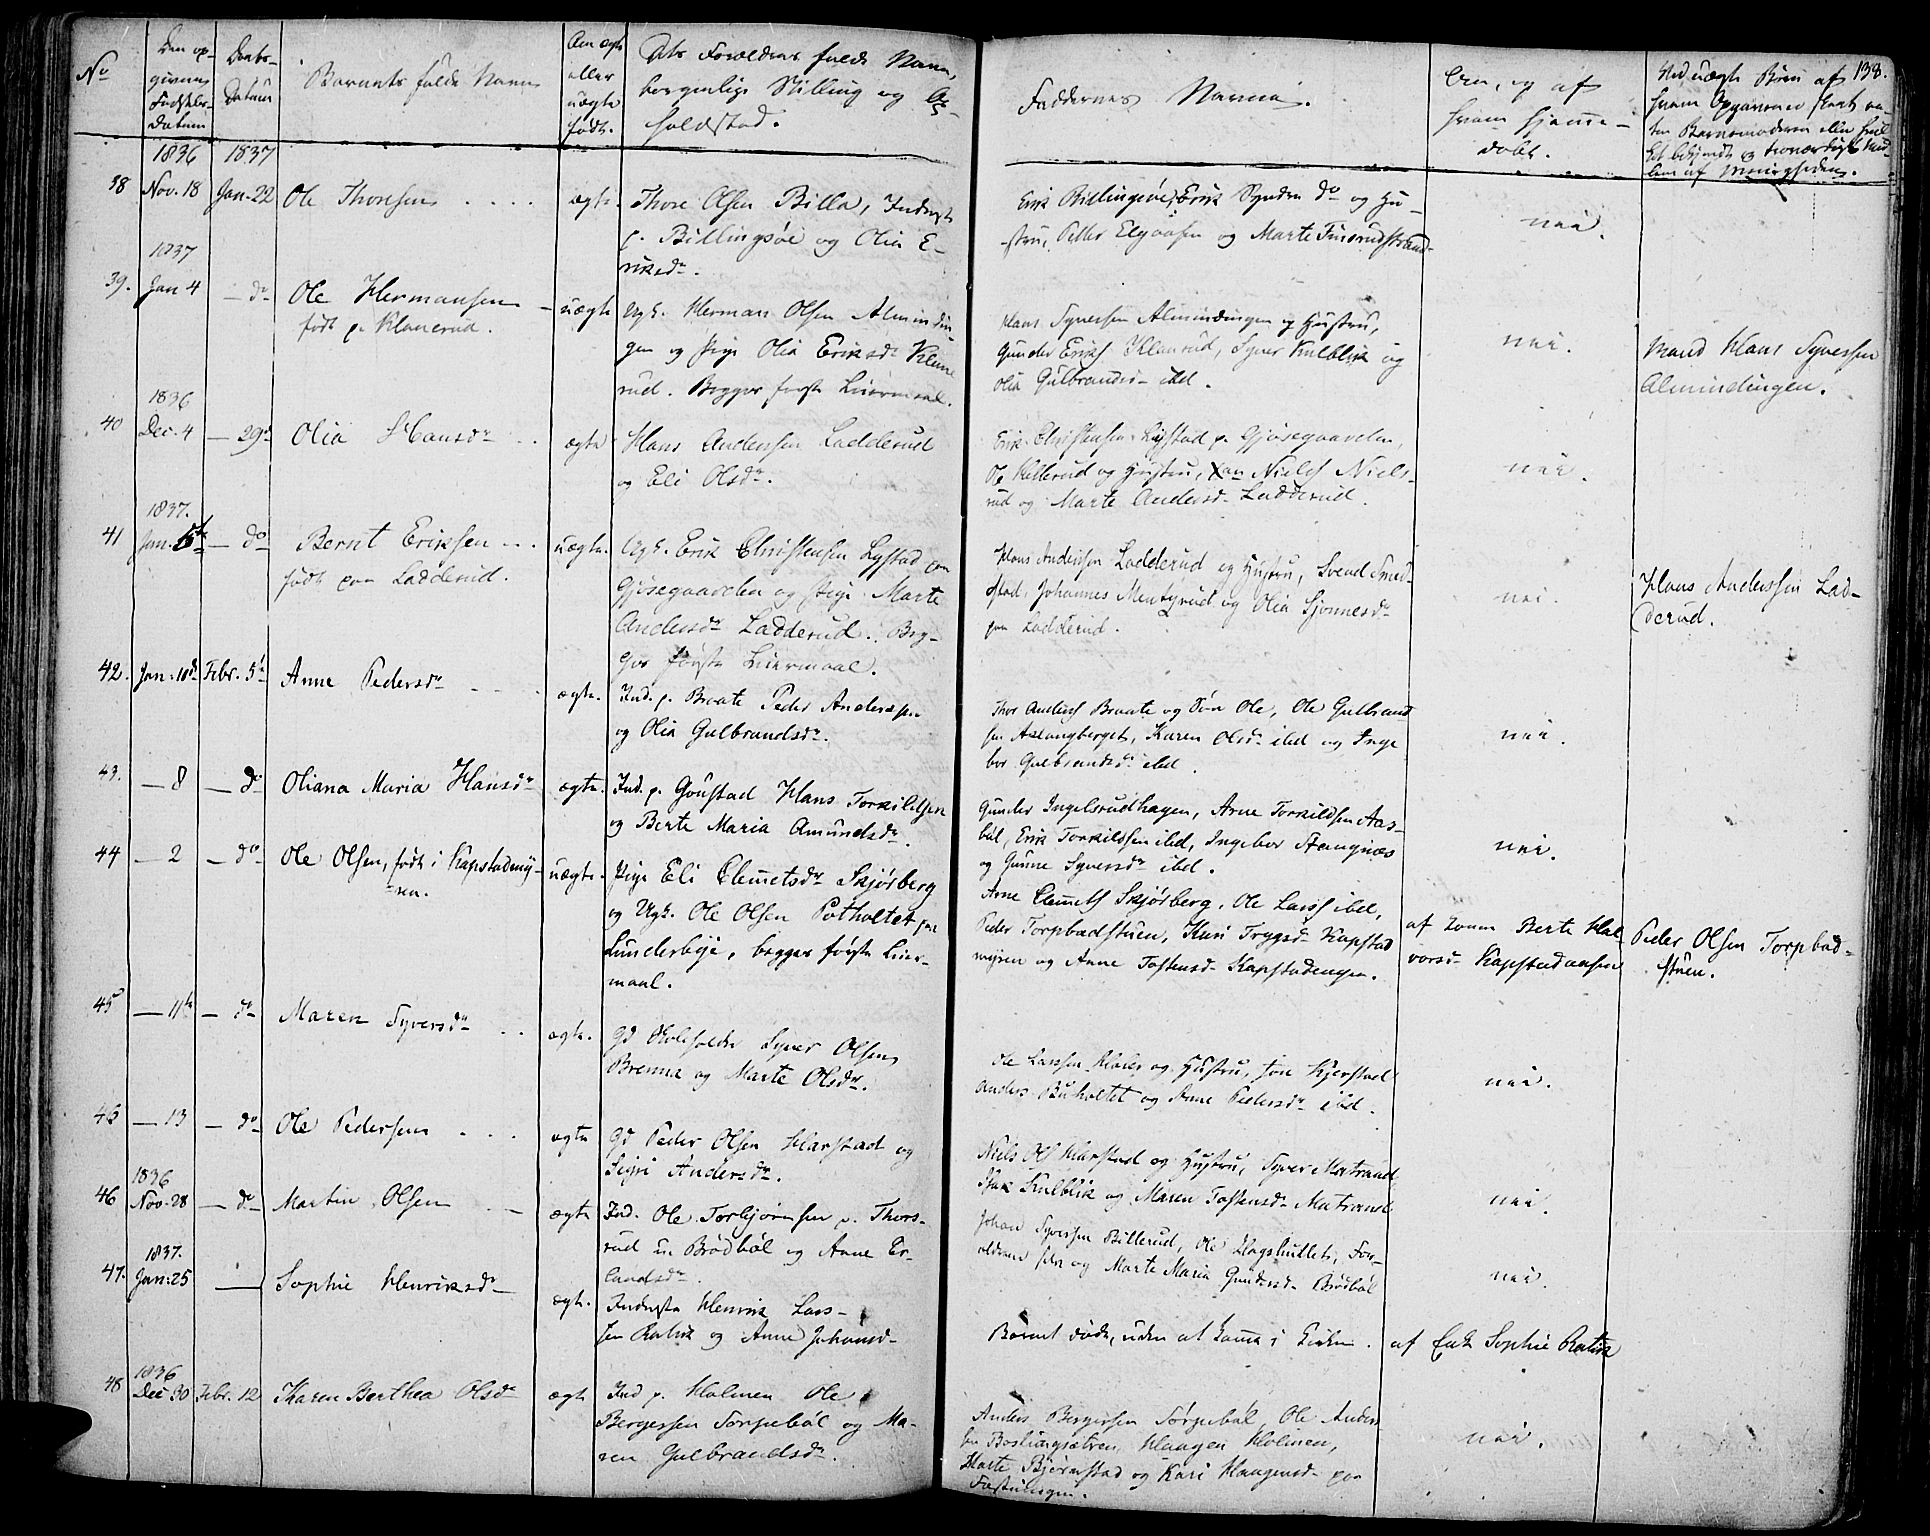 No
Den op-
givne
Fødsels-
Datum
Daabs-
Datum
Barnets fulde Navn
Om ægte
eller
uægte
født.
Dets Forældres fulde Navn,
borgerlige Stilling og Op-
holdssted.
Faddernes Navne.
Om, og af
hvem hjemme-
døbt.
Ved uægte Børn af
hvem Opgivende skeet en-
ten Barnemoderen eller hvil-
138.
1836 1837
38 Nov. 18 Jan. 22 Ole Thoresen ægte Thore Olsen Billa, Inderst
p. Billingsøe og Olia E-
riksdr.
Erik Billingsøe, Erik Søndre do og Hu-
stru, Peter Elgaasen og Marte Finsrudstrand
nei.
1837
39. Jan 4 — do Ole Hermansen uægte Ugk. Herman Olsen Almindin-
født p. Klanerud.
gen og Pige Olia Eriksdr Klane
rud. Begges første Leiermaal.
Hans Syversen Almindingen og Hustru,
Gunder Eriks. Klanrud, Syver Kulblik og
Olia Gulbrandsd ibd.
nei.
Mand Hans Syversen
Almindingen.
1836
40 Dec. 4 — 29d Olia Hansdr ægte Hans Andersen Ladderud
og Eli Olsdr.
Erik Christensen Lystad p. Gjøsegaarden,
Ole Kellerud og Hustru, Niels Niels-
rud og Marte Andersd Ladderud.
nei.
1837.
41 Jan. 6te — do Bernt Eriksen uægte. Ugk. Erik Christensen Lystad paa
født paa Ladderud.
Gjøsegaarden og Pige Marte
Andersdr Ladderud. Beg-
ges første Leiermaal.
Hans Andersen Ladderud og Hustru, Svend Smed-
stad, Johannes Mentzrud og Olia Sjønnesdr
paa Ladderud.
nei.
Hans Anderssen Lad-
derud.
42. Jan. 10d Febr. 5te Anne Pedersdr ægte. Ind. p. Braate Peder Andersen
og Olia Gulbrandsdr.
Thor Anders Braate og Søn Ole, Ole Gulbrand
sen Aslangberget, Karen Olsdr ibd og Inge
bor Gulbrandsdr ibd.
nei.
43. — 8 — do Oliana Maria Hansdr ægte. Ind. p. Goustad Hans Torkildsen
og Berte Maria Amundsdr.
Gunder Ingelsrudhagen, Arne Torkildsen Aas-
bøl, Erik Torkildsen ibd, Ingebor Stangnæs
og Gunne Syversdr ibd.
nei.
44 — 2 — do Ole Olsen, født i Kapstadmy-
ren.
uægte. Pige Eli Clemetsdr Skjørberg
og Ugk. Ole Olsen Potholtet paa
Lundersbye, begges første Leier-
maal.
Arne Clemets Skjørberg, Ole Lars. ibd,
Peder Torpbadstuen, Kari Trygsdr Kapstad
myren og Anne Tostensd Kapstadengen.
af Konen Berte Hal
vorsd Kapstad
Peder Olsen Torpbad-
stuen.
45 — 11te — do Maren Syversdr ægte. Gd Syver Olsen
Brenna og Marte Olsdr.
Ole Larssen og Hustru, Kjerstad
Anders Buholtet og Anne Pedersdr ibd.
nei.
45 — 13 — do Ole Pedersen ægte Gd Peder Olsen Harstad og
Sigri Andersdr.
Niels Ols. Harstad og Hustru, Syver Matrand
Isak Kulblik og Maren Tostensdr Matrand
nei.
1836
46 Nov. 28 — do Martin Olsen ægte Ind. Ole Torbjørnsen p. Thors-
rud u. Brødbøl og Anne Er-
landsdr.
Johan Syversen Billerud, Ole Hagshullet, For-
ældrene selv og Marte Maria Gundersd Brødbøl
nei.
1837.
47. Jan: 25 — Sophie Henriksdr ægte. Inderste Henrik Lars-
sen Ratik og Anne Johansd
Barnet døde, uden at komme i Kirken. af Enk Sophie Ratik
1836
48 Dec 30 Febr. 12 Karen Berthea Olsdr ægte Ind p. Holmen Ole
Bergersen Torpebøl og Ma-
ren Gulbrandsdr.
Anders Bergersen Torpebøl, Ole Anders
sen Haagen Holmen,
Marte Bjørnstad og Kari Haagensd paa
Fæstningen.
nei.